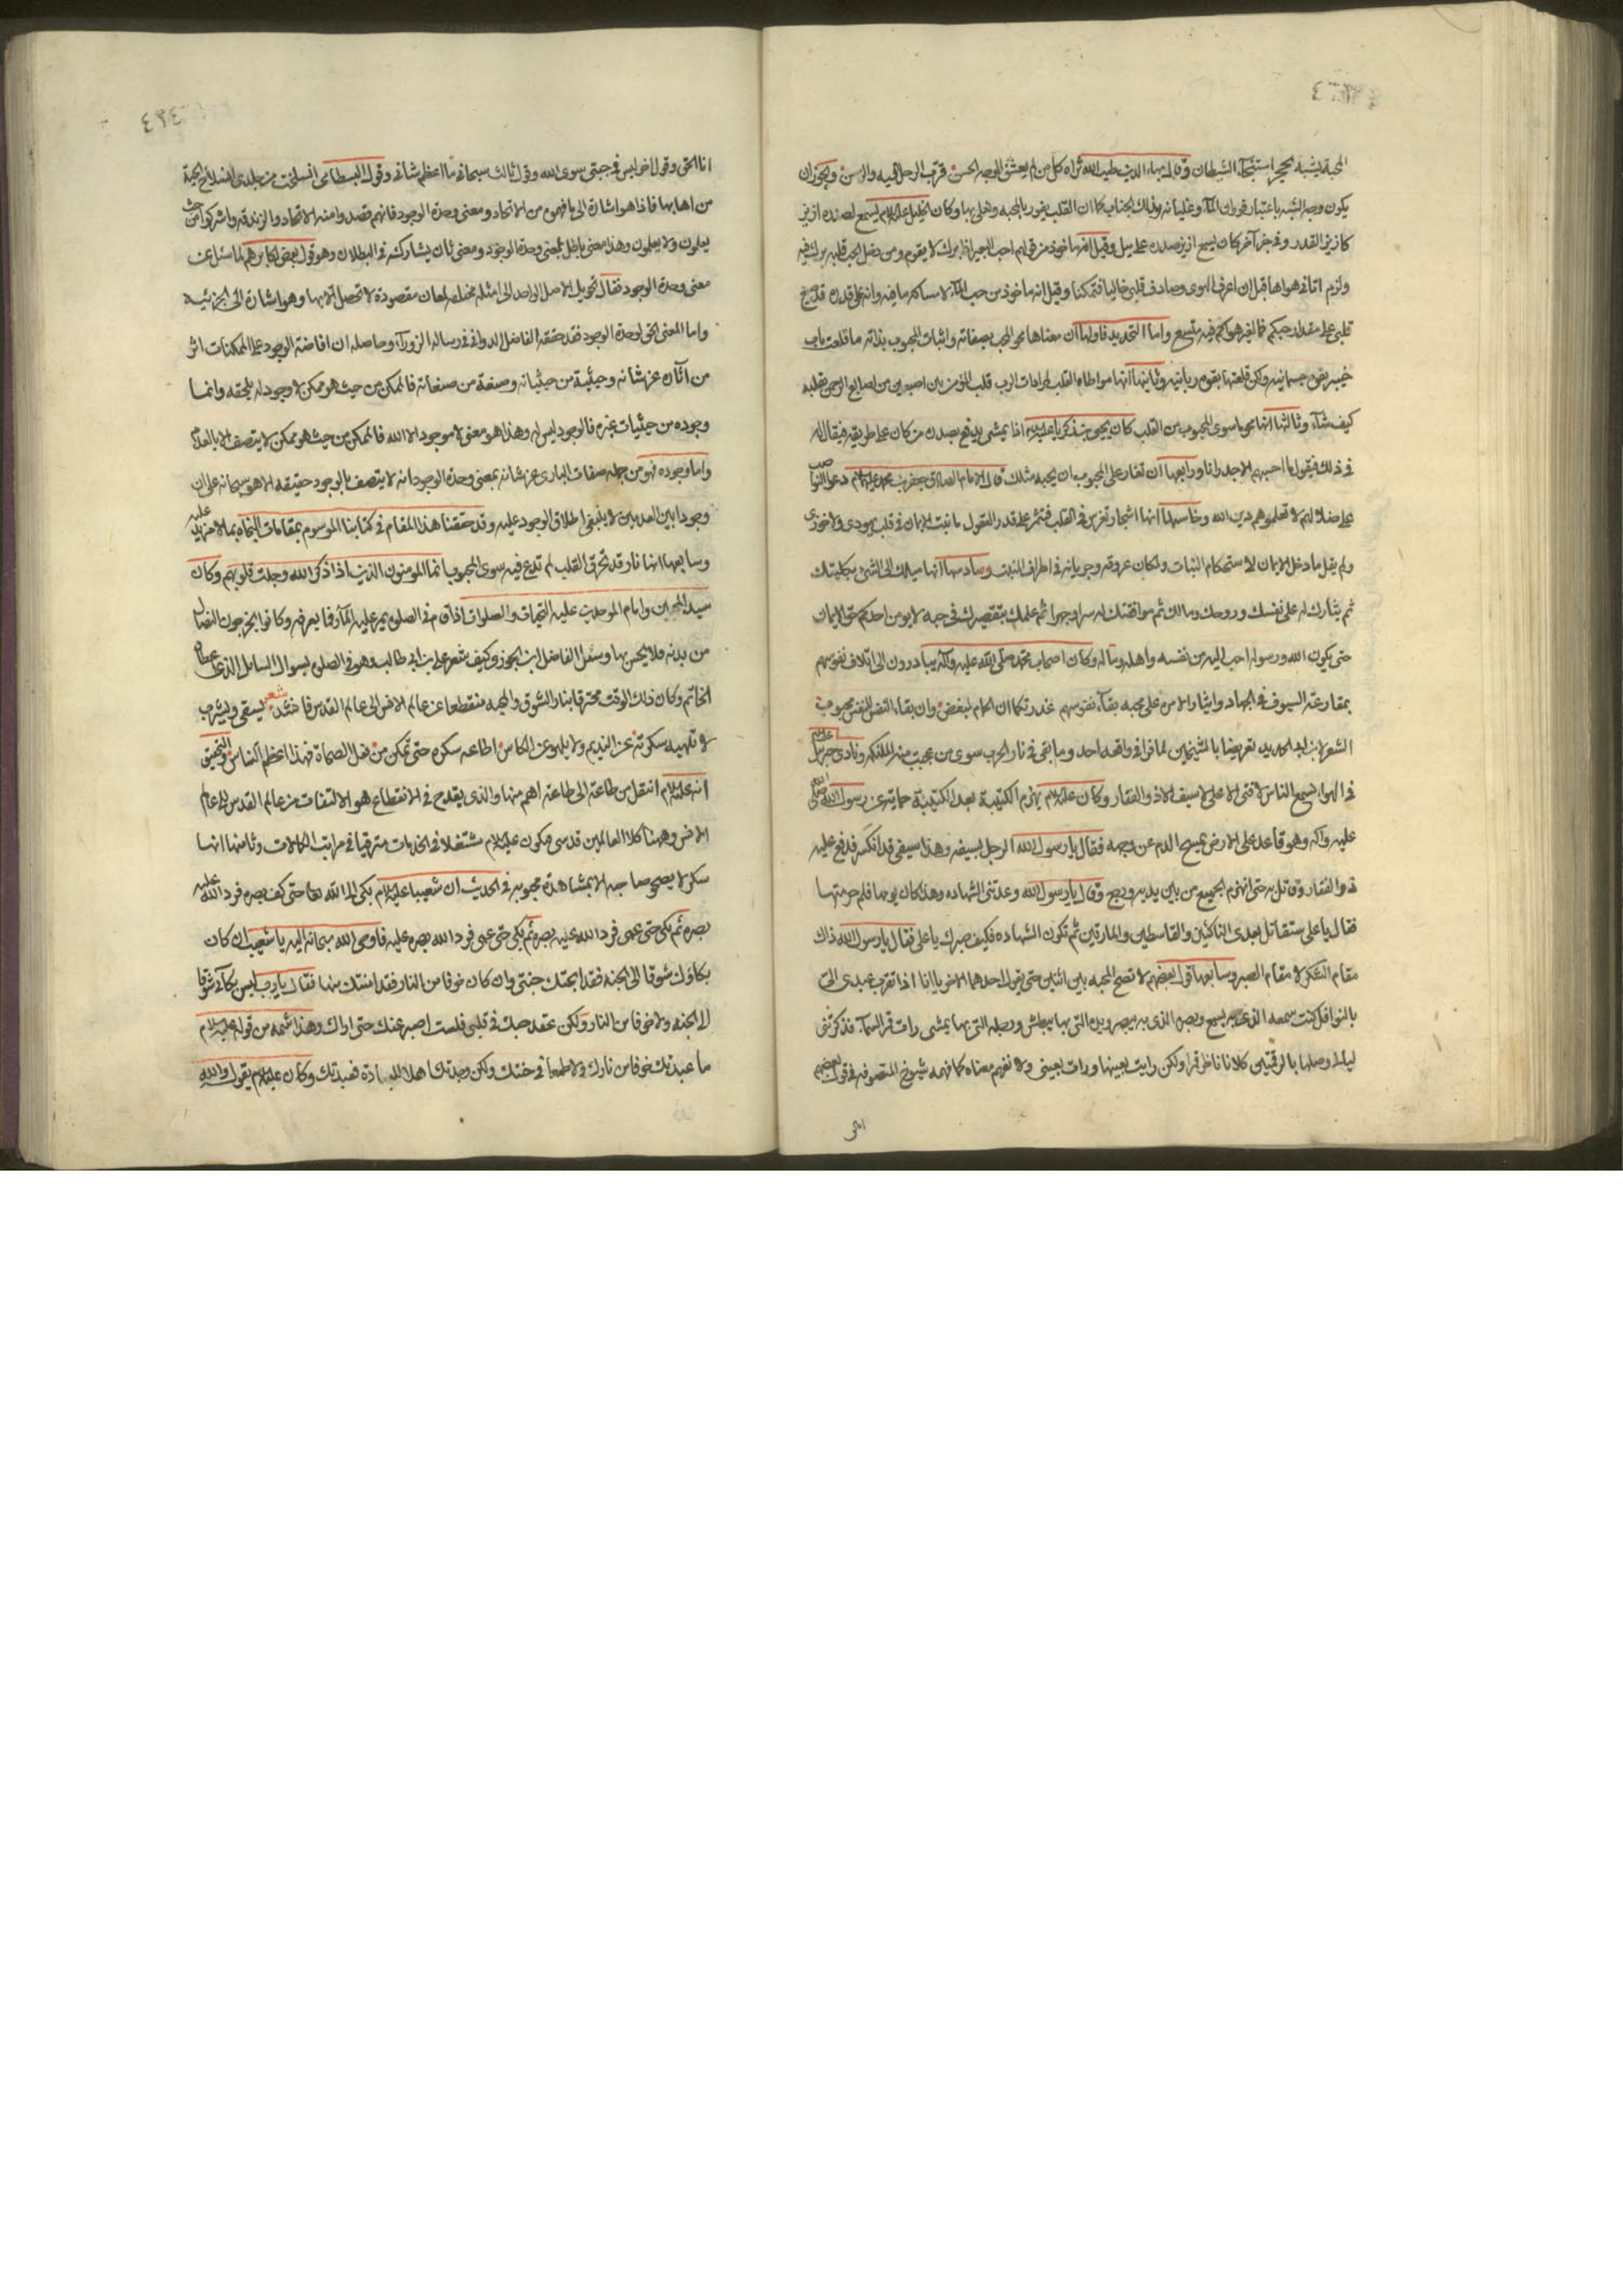 المحبة يشبه بحجر استنجآء الشيطان وقال بهاء الدين طيب الله ثراه كل من لم يعشق الوجه الحسن قرّب الرحل اليه والرسن ويجوز ان
يكون وجه الشبه باعتبار فوران المآء وغليانه وذلك الجناب كما ان القلب يفور بالمحبه ويغلي بها وكان الخليل عليه السلام يسمع لصدره ازيز
كازيز القدر وفي خبر آخر كان يسمع ازيز صدره على ميل وقيل انها ماخوذ من قولهم احب البعير اذا برك لا يقوم ومن دخل الحب قلبه برك فيه
ولزم اتاني هواها قبل ان اعرف الهوى وصادف قلبي خاليا فتمكنا وقيل انه ماخوذ من حب المآء لامساكه ما فيه وانه على قدره
قلبي على مقدار حبكم فما لغير هواكم فيه متسع واما التحديد فاولها ان معناها محو المحب بصفاته واثبات المحبوب بذاته ما قلعت باب
خيبر بقوه جسمانيه ولكن قلعتها بقوه ربانيه وثانيها انها مواطاه القلب لمرادات الرب قلب المؤمن بين اصبعين من اصابع الرحمن يقلبه
كيف شآء وثالثها انها محو ما سوى المحبوب من القلب كان يحيى بن زكريا عليه السلام اذا يمشي يدفع بصدره من كان على طريقه فيقال له
في ذلك فيقول ما احسبهم الا جدرانا ورابعها ان تغار على المحبوب ان يحبه مثلك قال الامام الصادق جعفر بن محمد عليه السلام دعوا النواصب
على ضلالتهم لا تعلموهم دين الله وخامسها انها اشجار تغرس في القلب فتثمر على قدر العقول ما نبت الايمان في قلب يهودي ولا خوزي
ولم يقل ما دخل الايمان لاستحكام النبات ولمكان عروقه وجريانه في اطراف المنبت وسادسها انها ميلك الى الشئ بكليتك
ثم يثارك له على نفسك وروحك ومالك ثم موافقتك له سرا وجهرا ثم علمك بتقصيرك في حبه لا يومن احدكم حق الايمان
حتى يكون الله ورسوله احب اليه من نفسه واهله وماله وكان اصحاب محمد صلى الله عليه وآله يبادرون الى اتلاف نفوسهم
بمقارعة السيوف في الجهاد وايثار الامر على محبه بقآء نفوسهم غدرتكما ان الحمام لمبغض وان بقاء النفس للنفس محبوب
الشعر لابن ابي الحديد تعريضا بالشيخين لما فرا في واقعه احد وما بقى في نار الحرب سوى من عجبت منه الملئكه ونادى جبرئيل عليه السلام
في الهوا يسمع الناس لا فتى الا علي لا سيف الا ذو الفقار وكان عليه السلام يهزم الكتيبة بعد الكتيبة حمايته عن رسول الله صلى الله
عليه واله وهو قاعد على الارض يمسح الدم عن وجهه فقال يا رسول الله الرجل بسيفه وهذا سيفي قد انكسر فدفع عليه
ذو الفقار وقاتل به حتى انهزم الجميع من بين يديه ورجع وقال يا رسول الله وعدتني الشهاده وهذا كان يومها فلم حرمتها
فقال يا علي ستقاتل بعدى الناكثين والقاسطين والمارقين ثم تكون الشهاده فكيف صبرك يا علي فقال يا رسول الله ذاك
مقام الشكر لا مقام الصبر وسابعها قول بعضهم لا تصح المحبه بين اثنين حتى يقول احدهما للاخر يا انا اذا تقرب عبدى الي
بالنوافل كنت سمعه الذى به يسمع وبصره الذى به يبصر ويده التي بها يبطش ورجله التي بها يمشى رات قمر السمآء فذكرتني
ليالي وصلها بالرقمتين كلانا ناظر قمرا ولكن رايت بعينها ورات بعيني ولا تفهم معناه كما فهمه شيوخ المتصوفه في قول بعضهم
انا الحق
انا الحق وقول اخر ليس في جبتي سوى الله وقول ثالث سبحاني ما اعظم شاني وقول البسطامى انسلخت من جلدى انسلاخ الحية
من اهابها فاذا هو اشارة الى ما فهموه من الاتحاد ومعنى وحدة الوجود فانهم قصدوا منه الاتحاد والزندقه واشركوا من حيث
يعلمون ولا يعلمون وهذا معنى باطل لمعنى وحدة الوجود ومعنى ثان يشاركه في البطلان وهو قول بعض اكابرهم لما سئل عن
معنى وحدة الوجود فقال تحويل الاصل الواحد الى امثله مختلفه لمعان مقصودة لا تحصل الا بها وهو اشارة الى الجزئيه
واما المعنى الحق لوحدة الوجود فقد حققه الفاضل الدواني في رساله الزورآء وحاصله ان افاضة الوجود على الممكنات اثر
من آثاره عز شانه وحيثية من حيثياته وصفة من صفاته فالممكن من حيث هو ممكن لا وجود له يلحقه وانما
وجوده من حيثيات غيره فالوجود ليس له وهذا هو معنى لا موجود الا الله فالممكن من حيث هو ممكن لا يتصف الا بالعدم
واما وجوده فهو من جمله صفات البارى عز شانه بمعنى وحدة الوجود انه لا يتصف بالوجود حقيقه الا هو سبحانه على ان
وجودا بين العدمين لا ينبغي اطلاق الوجود عليه وقد حققنا هذا المقام في كتابنا الموسوم بمقامات النجاه بما لا مزيد عليه
وسابعها انها نار قد تحرق القلب لم تدع فيه سوى المحبوب انما المومنون الذين اذا ذكر الله وجلت قلوبهم وكان
سيد المحبين وامام الموحدين عليه التحيات والصلوات اذا قام في الصلوه يمر عليه المآر فما يعرفه وكانوا يخرجون النصال
من بدنه فلا يحس بها وسئل الفاضل ابن الجوزى كيف شعر علي بن ابي طالب وهو في الصلوه بسوال السايل الذى اعطاه
الخاتم وكان ذلك الوقت محترقا بنار الشوق والمحبه منقطعا عن عالم الارض الى عالم القدس فانشد شعر يسقى ويشرب
لا تلهيه سكرته عن النديم ولا يلهو عن الكاس اطاعه سكره حتى تمكن من فعل الصحاة فهذا اعظم الناس والتحقيق
انه عليه السلام انتقل من طاعة الى طاعة اهم منها والذى يقدح في الانقطاع هو الالتفات من عالم القدس الى عالم
الارض وههنا كلا العالمين قدسى فيكون عليه السلام مشتغلا في الخدمات مترقيا في مراتب الكمالات وثامنها انها
سكر لا يصحو صاحبه الا بمشاهدة محبوبه في الحديث ان شعيبا عليه السلام بكى الى الله تعالى حتى كف بصره فرد الله عليه
بصره ثم بكى حتى عمى فرد الله عليه بصره ثم بكى حتى عمى فرد الله بصره عليه فاوحى الله سبحانه اليه يا شعيب ان كان
بكاؤك شوقا الى الجنه فقد ابحتك جنتي وان كان خوفا من النار فقد امنتك منها فقال يا رب ليس بكآئي شوقا
الى الجنه ولا خوفا من النار ولكن عقد حبك في قلبي فلست اصبر عنك حتى اراك وهذا شمه من قوله عليه السلام
ما عبدتك خوفا من نارك ولا طمعا في جنتك ولكن وجدتك اهلا للعبادة فعبدتك وكان عليه السلام يقول والله